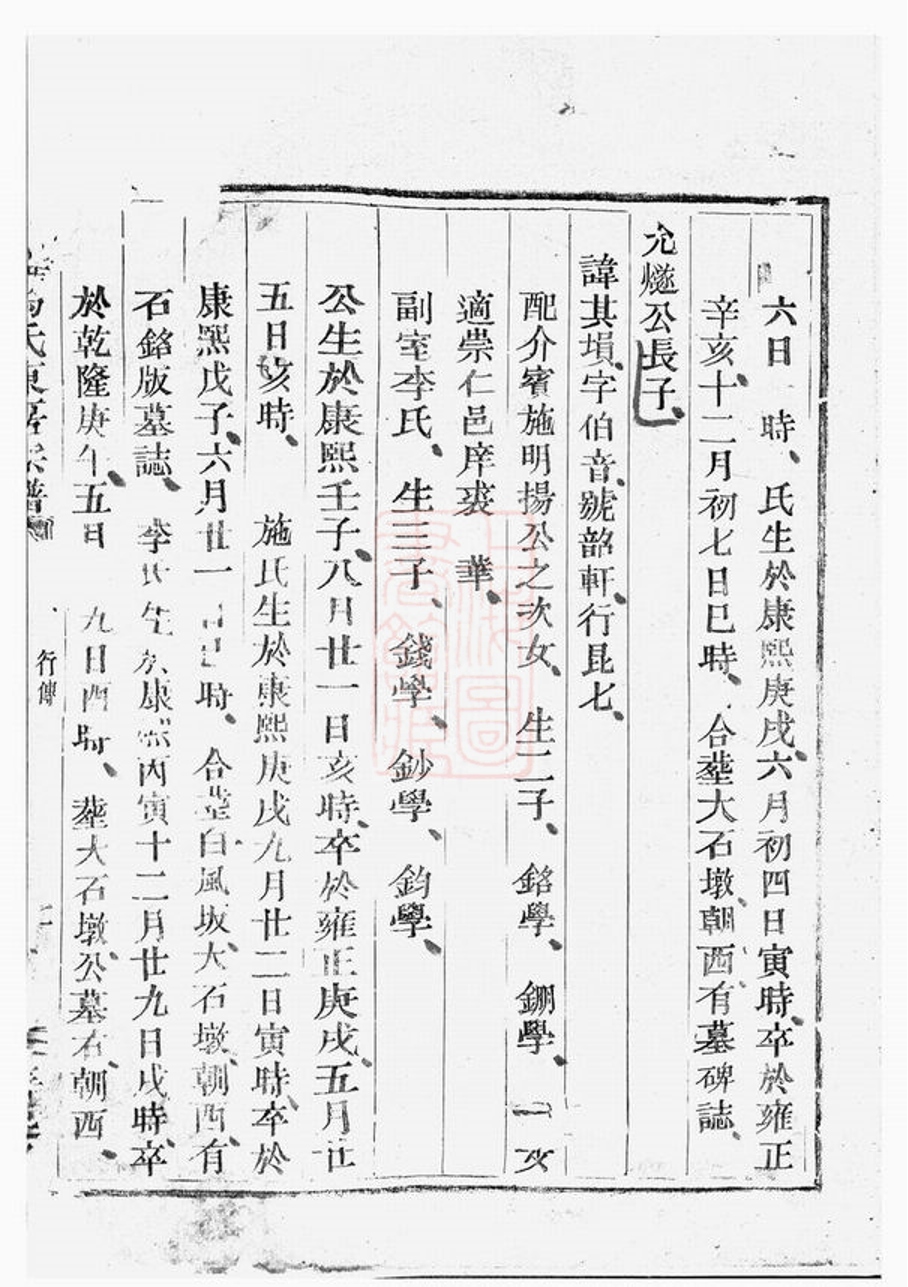 六日 時、氏生於康熙庚戌、六月初四日寅時、卒於雍正
辛亥、十二月初七日巳時、合塟大石墩、朝西、有墓碑誌、
允燧公長子、
諱其塤、字伯音、號韶軒、行昆七、
配介賓施明揚公之次女、生二子、銘學、鎙學、一女
適崇仁邑庠裘 華、
副室李氏、生三子、錢學、鈔學、鈞學、
公生於康熙壬子、八月廿一日亥時、卒於雍正庚戌、五月廿
五日亥時、 施氏生於康熙庚戌九月廿二日寅時、卒於
康熙戊子、六月廿一 時、合塟白風坂、大石墩、朝西、有
石銘版墓誌、李氏生於康熙丙寅十二月廿九日戌時、卒
於乾隆庚午、五 九日酉時、塟大石墩、公墓右、朝西、
氏東房宗譜
行傳